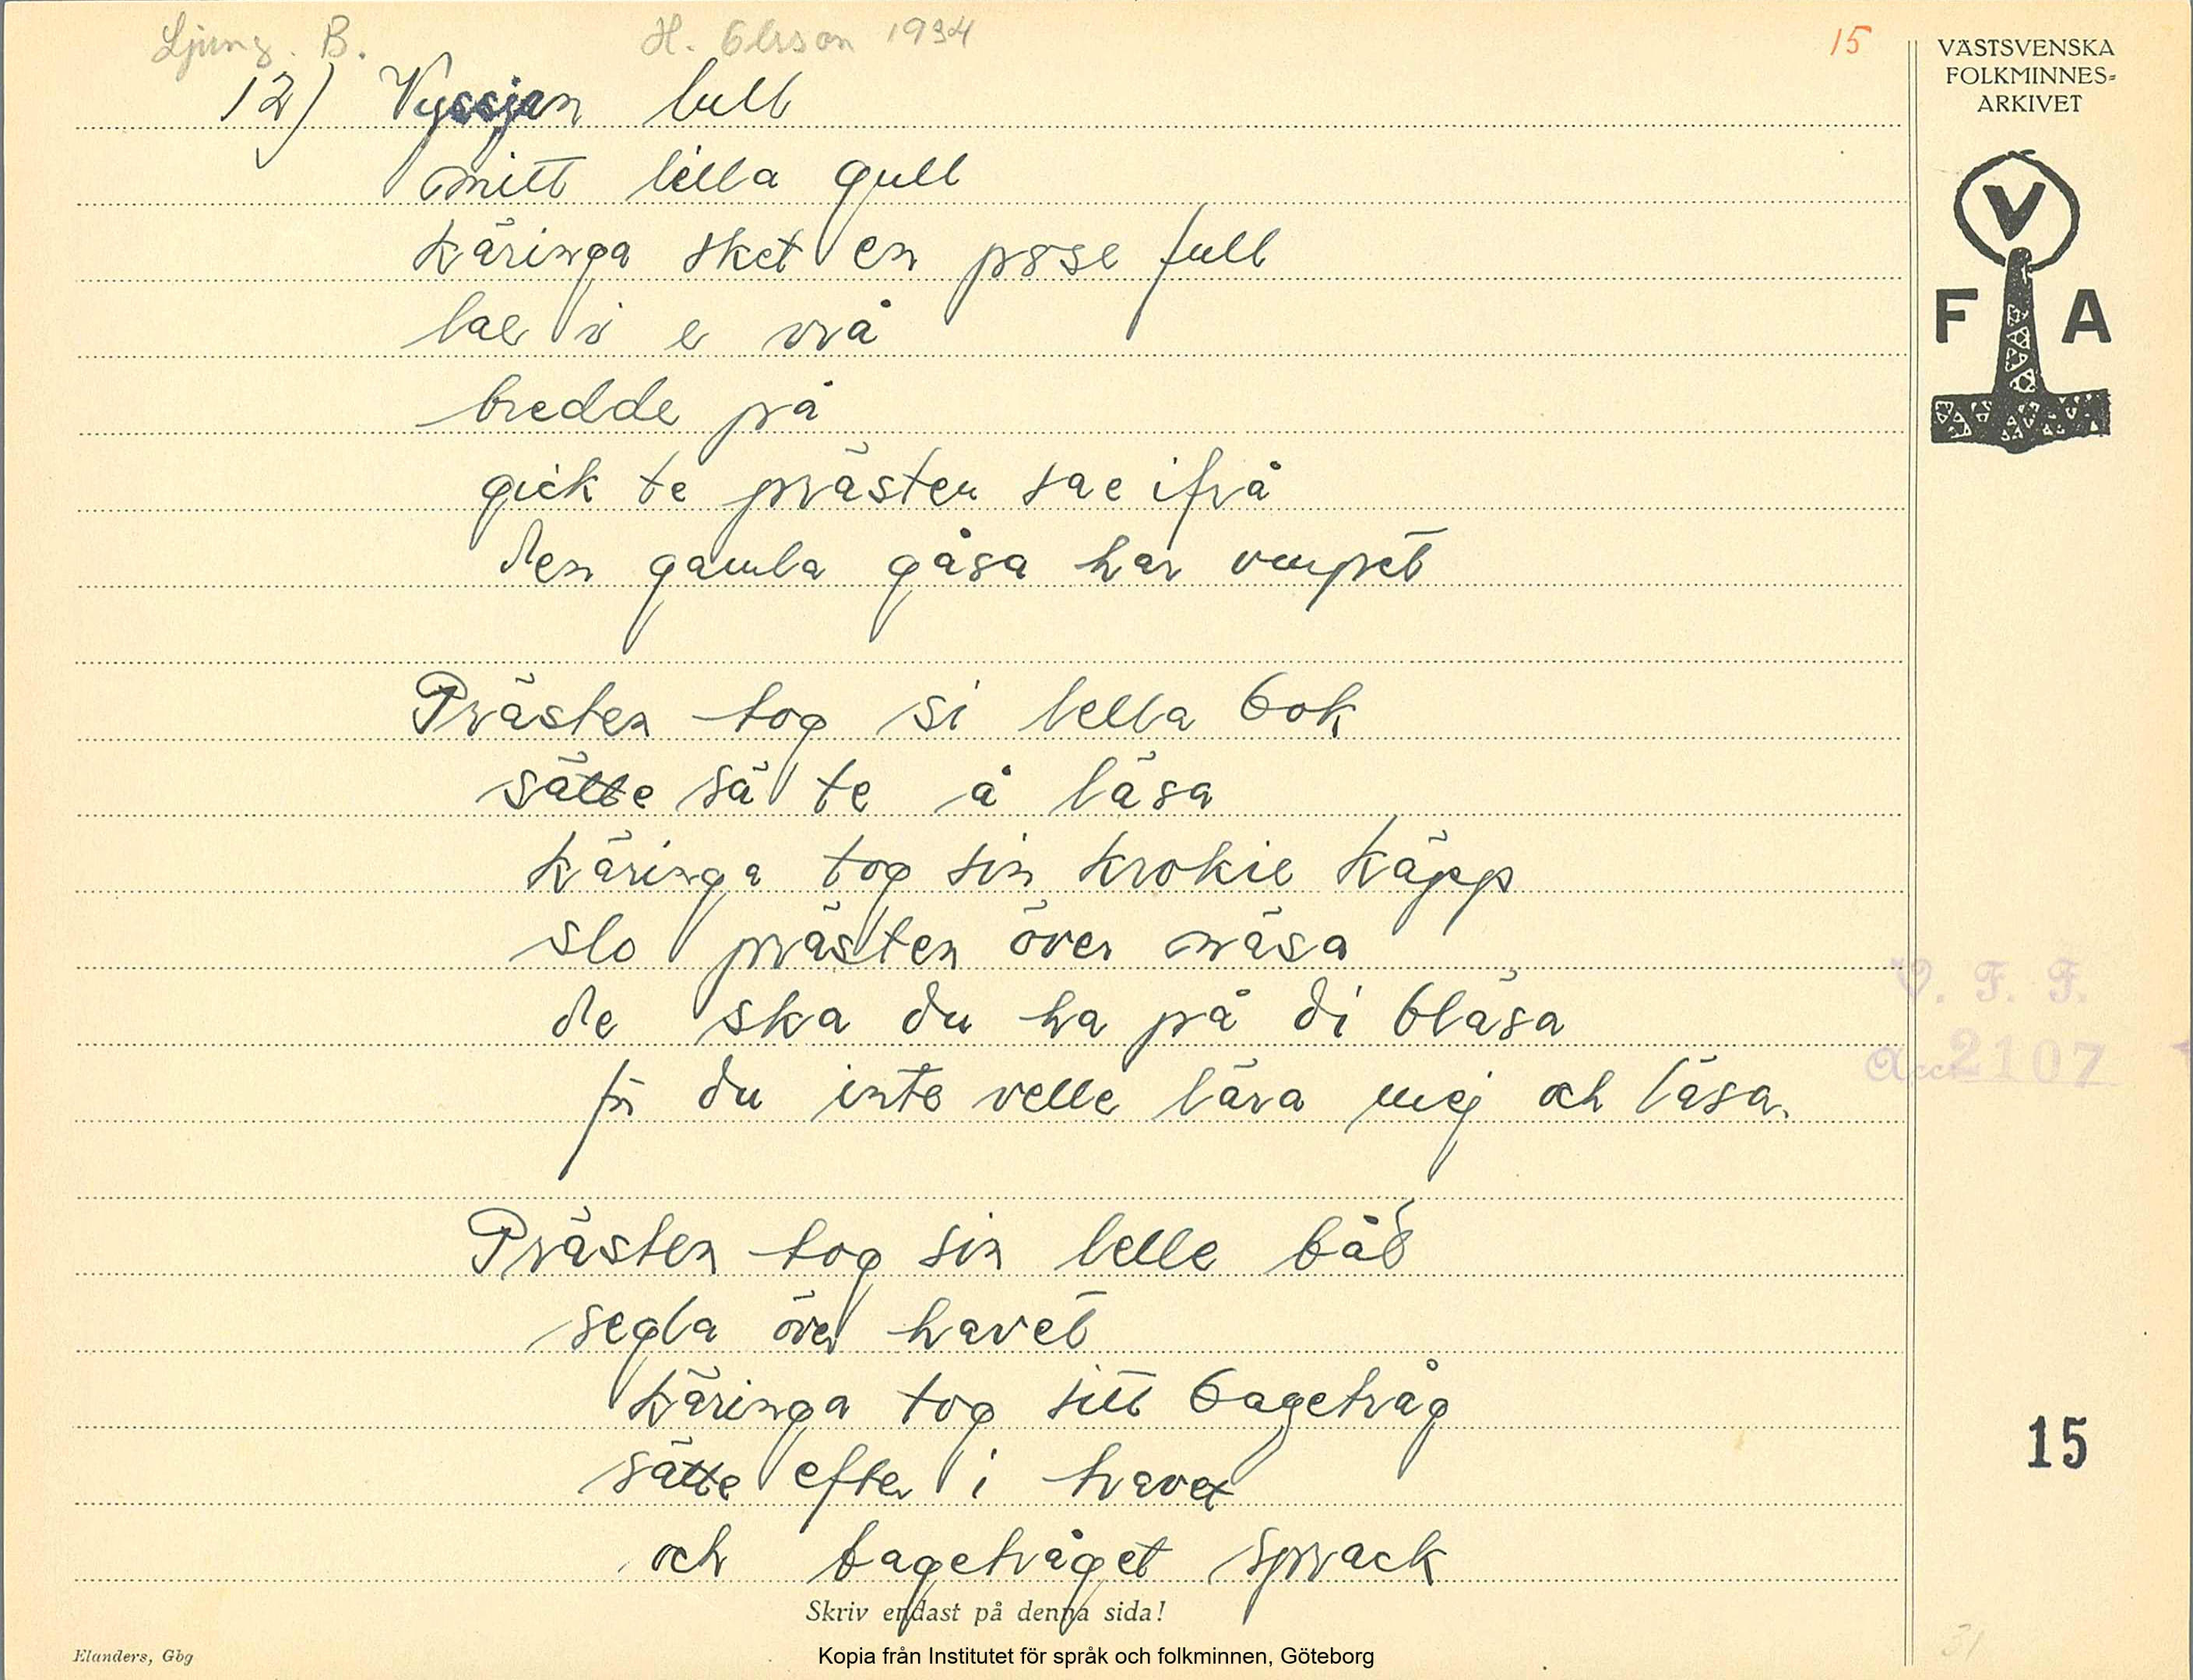 Ljung. B. H. Olsson 1934 15
VÄSTSVENSKA
FOLKMINNES=
ARKIVET
12) Vyssjan lull
mitt lilla gull
käringa sket en pose full
lae i e vrå
bredde på
gick te prästen sae ifrå
den gamla gåsa har vurpet
V
F A
Prästen tog si lella bok
sätte sä te å läsa
käringa tog sin krokie käpp
slo prästen över näsa
de ska du ha på di bläsa
för du inte velle lära mej och läsa.
V. F. F.
Acc. 2107
Prästen tog sin lelle båt
segla över havet
käringa tog sitt bagetråg
sätte efter i havet
och bagetråget sprack
15
Skriv endast på denna sida!
Elanders, Gbg
Kopia från Institutet för språk och folkminnen, Göteborg
31